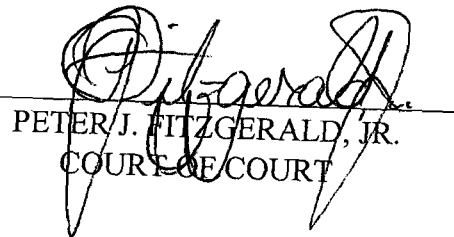 Fitzgerald Jr.
PETER J. FITZGERALD, JR.
COURT OF COURT